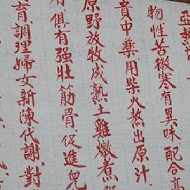 物性苦微寒有異味配合
貴中藥用柴火熬出原汁
原野放牧成熟土雞燉煮
有俱有強壯筋骨促進兒
育調理婦女新陳代謝對